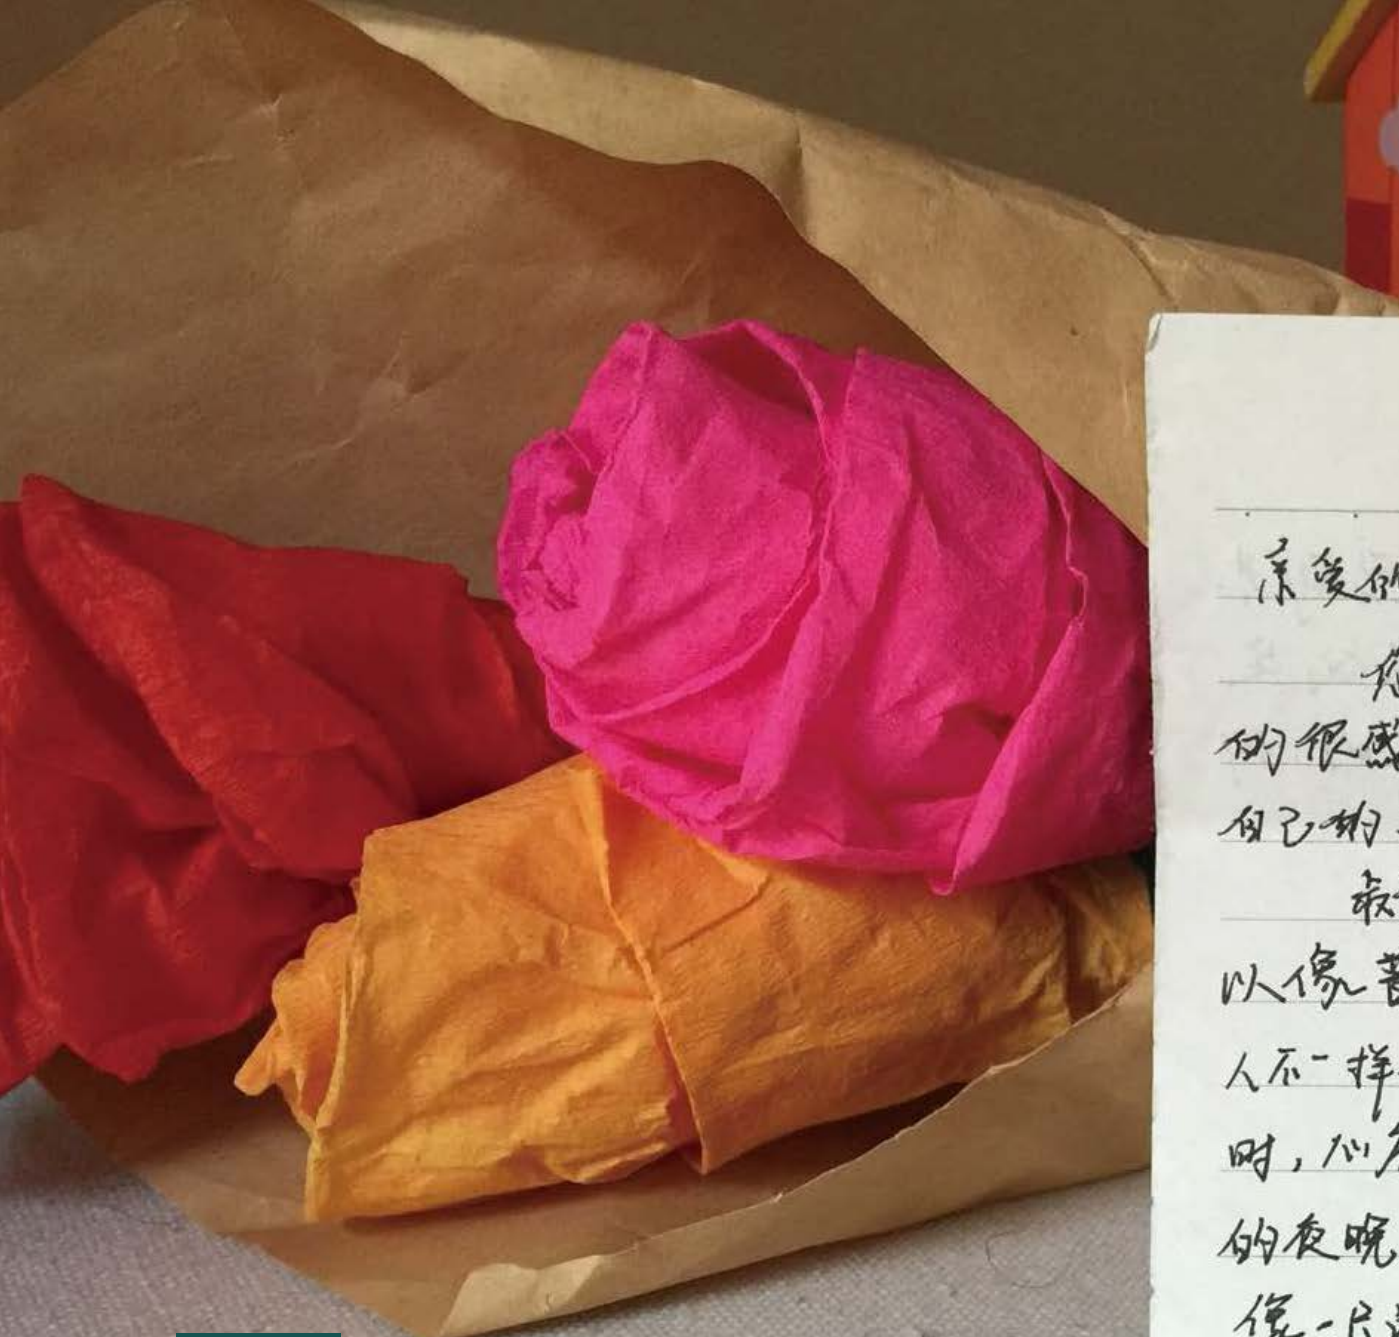 亲爱的
您
的很感
自己的
最
以像普
人不一样
时，心
的夜晚
像一只